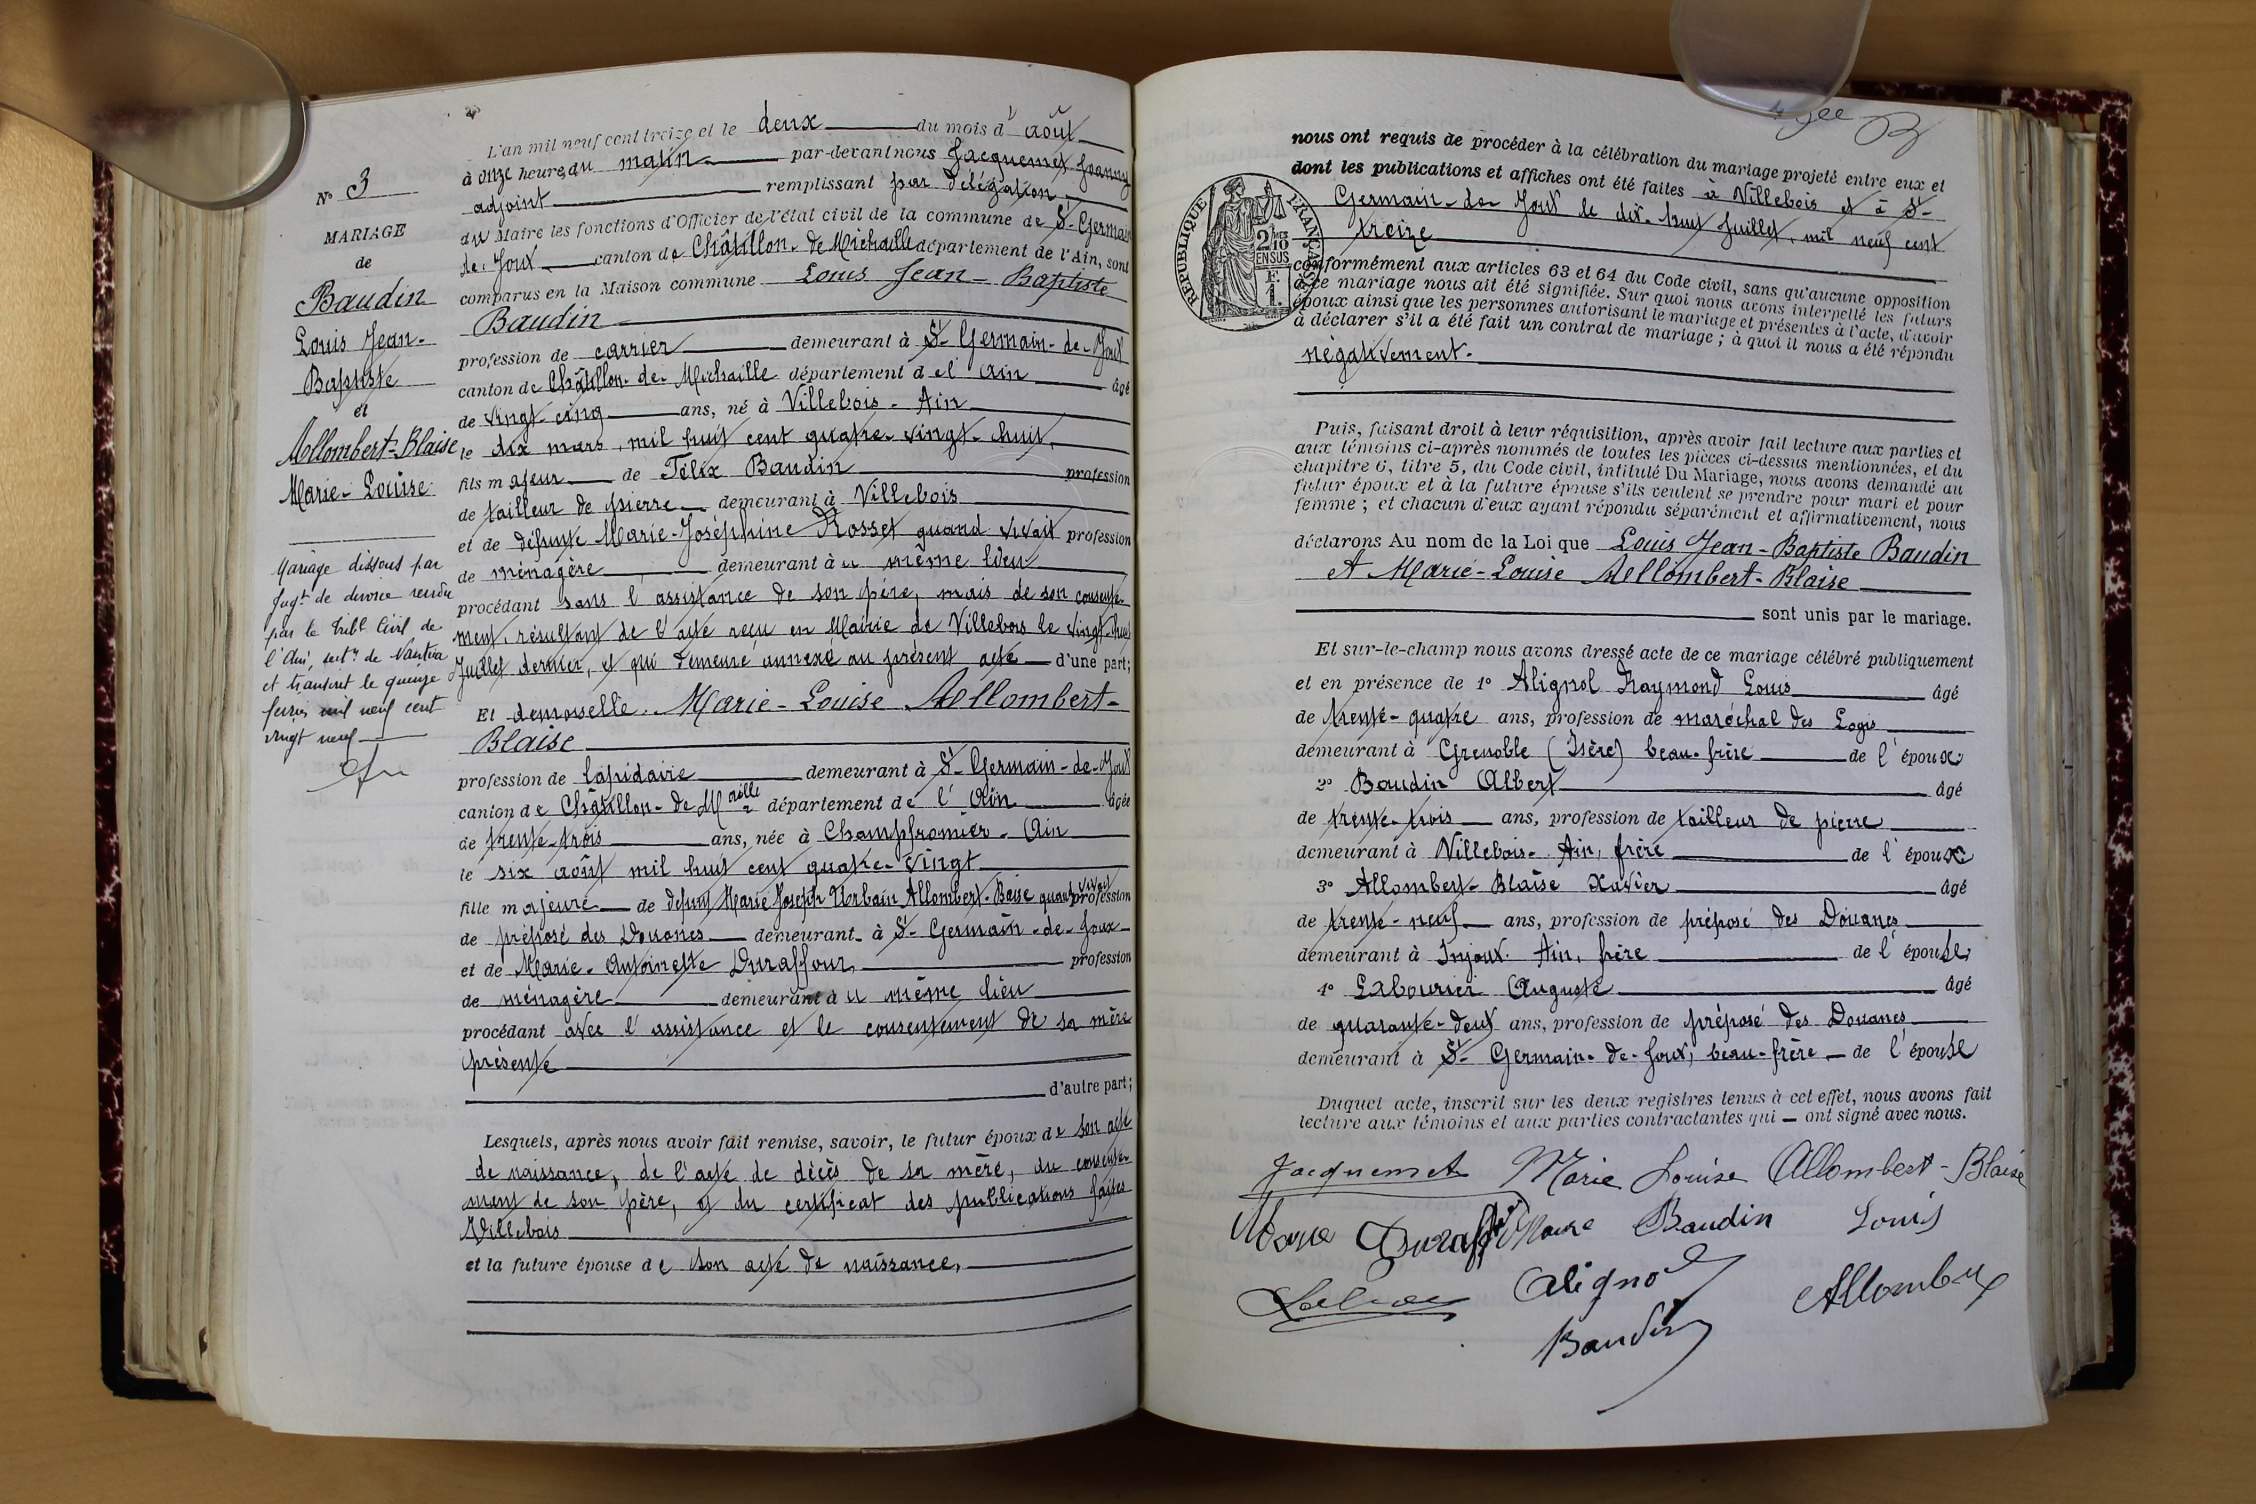 N° 3
MARIAGE
de
Baudin
Louis Jean-
Baptiste
et
Allombert-Blaise
Marie-Louise
Mariage dissous par
Jugt de divorce rendu
par le Tribl Civil de
l'Ain, sectn de Nantua
et transcrit le quinze
février mil neuf cent
vingt neuf
L'an mil neuf cent treize et le deux du mois d'août
à onze heures du matin par-devant nous Jacquemet Joanny
adjoint remplissant par délégation
du Maire les fonctions d'Officier de l'état civil de la commune de St-Germain
de-Joux canton de Châtillon-de-Michaille département de l'Ain, sont
comparus en la Maison commune Louis Jean-Baptiste
Baudin
profession de carrier demeurant à St-Germain-de-Joux
canton de Châtillon-de-Michaille département de l'Ain âgé
de vingt-cinq ans, né à Villebois-Ain
le dix mars, mil huit cent quatre-vingt-huit,
fils majeur de Félix Baudin profession
de tailleur de pierre demeurant à Villebois
et de défunte Marie-Joséphine Rosset quand vivait profession
de ménagère demeurant à u même lieu
procédant sans l'assistance de son père, mais de son consente-
ment, résultant de l'acte reçu en Mairie de Villebois le vingt-huit
Juillet dernier, et qui demeure annexé au présent acte d'une part;
Et demoiselle Marie-Louise Allombert-
Blaise
profession de lapidaire demeurant à St-Germain-de-Joux
canton de Châtillon-de-Maille département de l'Ain âgée
de trente-trois ans, née à Champfromier-Ain
le six août mil huit cent quatre-vingt
fille majeure de défunt Marie Joseph Urbain Allombert-Baise quand vivait profession
de préposé des Douanes demeurant à St-Germain-de-Joux
et de Marie-Antoinette Duraffour, profession
de ménagère demeurant à u même lieu
procédant avec l'assistance et le consentement de sa mère
présente
d'autre part;
Lesquels, après nous avoir fait remise, savoir, le futur époux de son acte
de naissance, de l'acte de décès de sa mère, du consente-
ment de son père, et du certificat des publications faites
Villebois
et la future épouse de son acte de naissance,
nous ont requis de procéder à la célébration du mariage projeté entre eux et
dont les publications et affiches ont été faites à Villebois et à St-
Germain-de-Joux le dix-huit Juillet, mil neuf cent
treize
RÉPUBLIQUE FRANÇAISE
2/10
EN SUS
1 F.
conformément aux articles 63 et 64 du Code civil, sans qu'aucune opposition
à ce mariage nous ait été signifiée. Sur quoi nous avons interpellé les futurs
époux ainsi que les personnes autorisant le mariage et présentes à l'acte, d'avoir
à déclarer s'il a été fait un contrat de mariage; à quoi il nous a été répondu
négativement.
Puis, faisant droit à leur réquisition, après avoir fait lecture aux parties et
aux témoins ci-après nommés de toutes les pièces ci-dessus mentionnées, et du
chapitre 6, titre 5, du Code civil, intitulé Du Mariage, nous avons demandé au
futur époux et à la future épouse s'ils veulent se prendre pour mari et pour
femme; et chacun d'eux ayant répondu séparément et affirmativement, nous
déclarons Au nom de la Loi que Louis Jean-Baptiste Baudin
et Marie-Louise Allombert-Blaise
sont unis par le mariage.
Et sur-le-champ nous avons dressé acte de ce mariage célébré publiquement
et en présence de 1° Alignol Raymond Louis âgé
de trente-quatre ans, profession de maréchal des Logis
demeurant à Grenoble (Isère) beau-frère de l'époux
2° Baudin Albert âgé
de trente-trois ans, profession de tailleur de pierre
demeurant à Villebois-Ain, frère de l'époux
3° Allombert-Blaise Xavier âgé
de trente-neuf ans, profession de préposé des Douanes
demeurant à Injoux-Ain, frère de l'épouse,
4° Labourier Auguste âgé
de quarante-deux ans, profession de préposé des Douanes
demeurant à St-Germain-de-Joux, beau-frère de l'épouse
Duquel acte, inscrit sur les deux registres tenus à cet effet, nous avons fait
lecture aux témoins et aux parties contractantes qui ont signé avec nous.
Jacquemet Marie Louise Allombert-Blaise
Baudin Louis
Alignol Allombert
Baudin